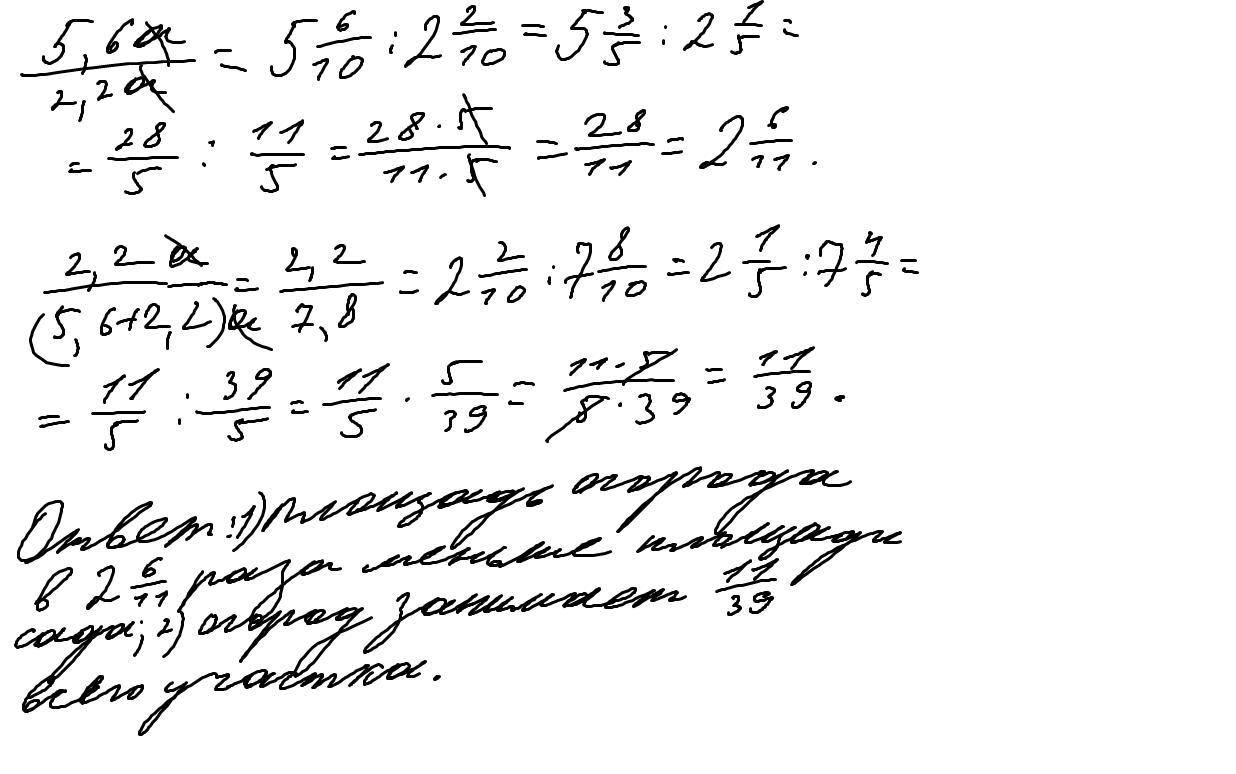 5,6а/2,2а = 5 6/10 : 2 2/10 = 5 3/5 : 2 1/5 =
= 28/5 : 11/5 = 28·5/11·5 = 28/11 = 2 6/11.
2,2а/(5,6+2,2)а = 2,2/7,8 = 2 2/10 : 7 8/10 = 2 1/5 : 7 4/5 =
= 11/5 : 39/5 = 11/5 · 5/39 = 11·5/5·39 = 11/39.
Ответ: 1) площадь огорода
в 2 6/11 раза меньше площади
сада; 2) огород занимает 11/39
всего участка.